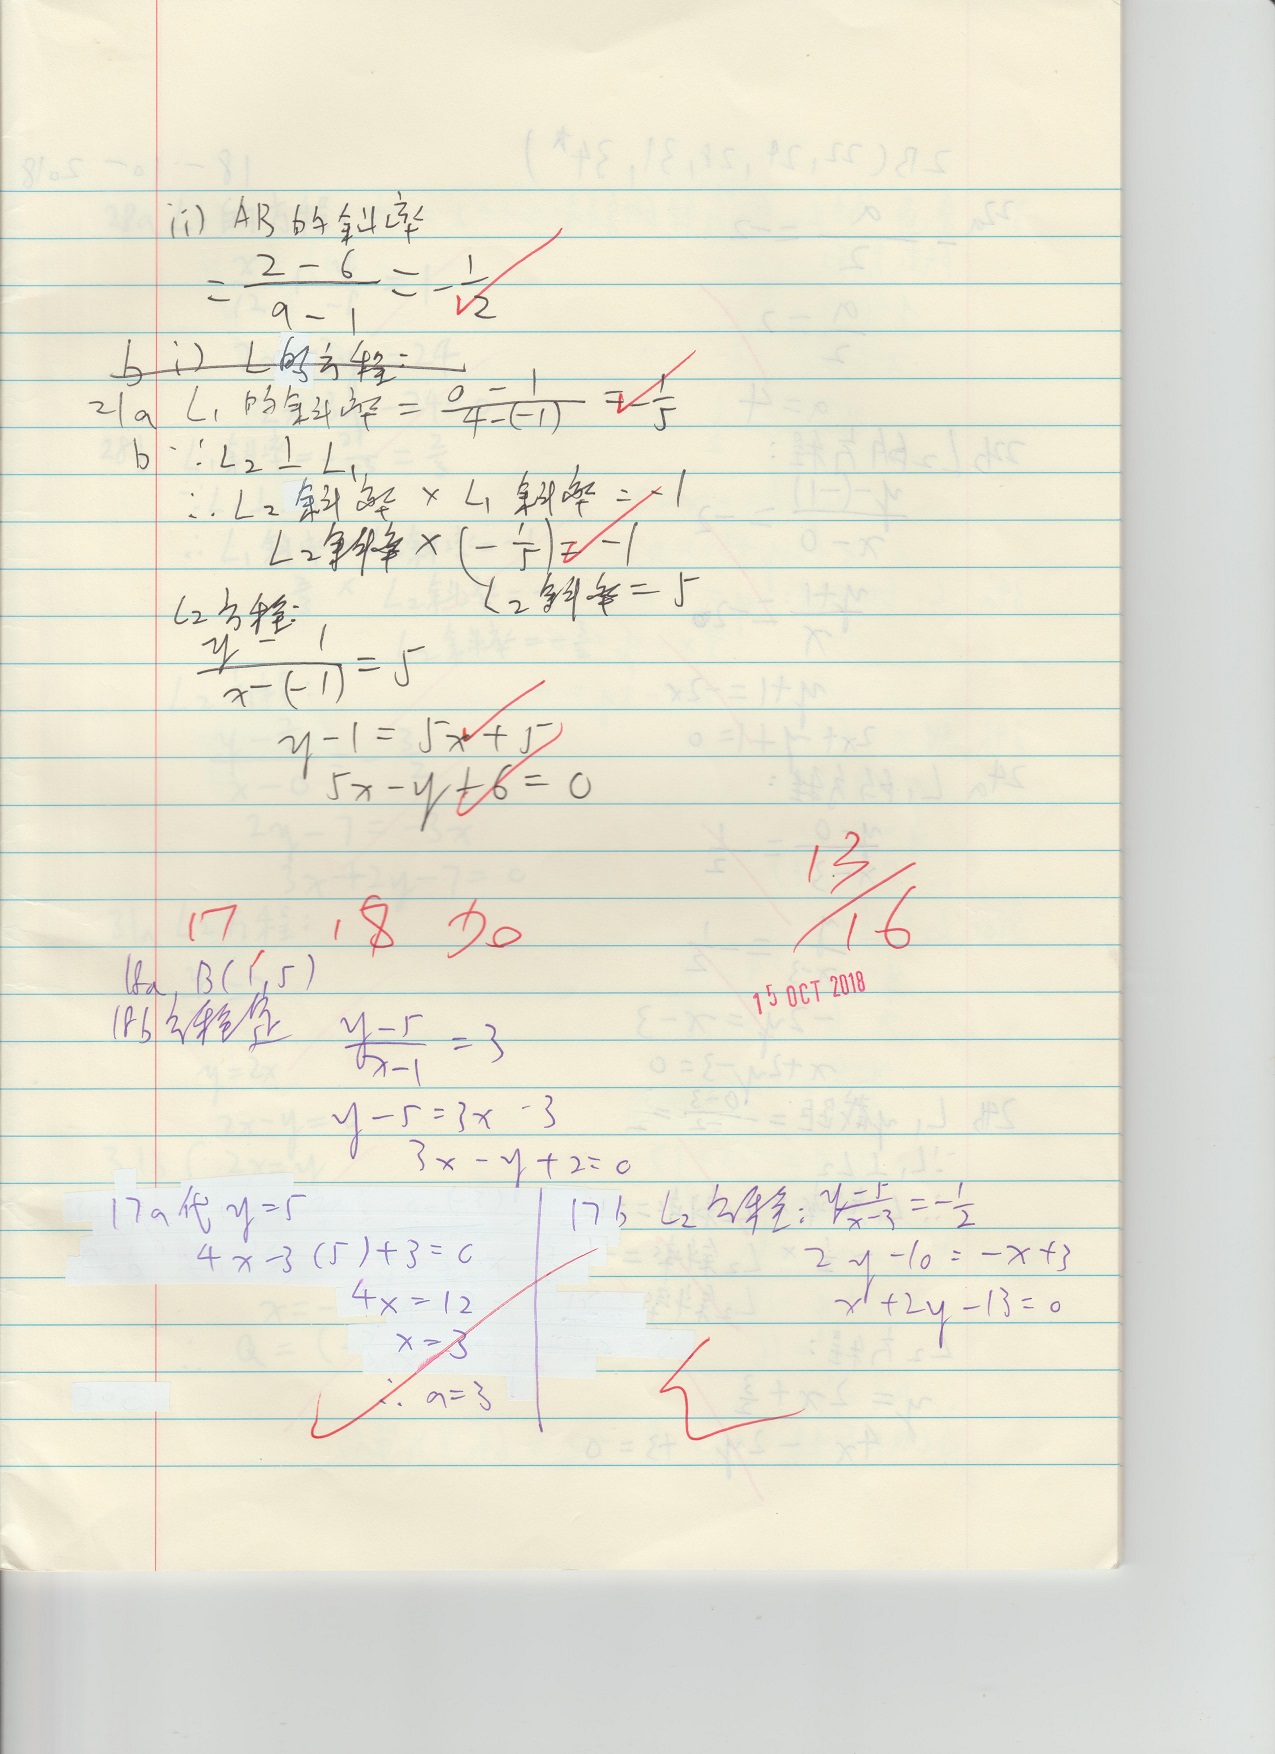 ii) AB的斜率
= \frac{2-6}{9-1} = -\frac{1}{2}
b i) L的方程:
21a L₁的斜率 = \frac{0-1}{4-(-1)} = -\frac{1}{5}
b ∵L₂⊥L₁
∴L₂斜率 × L₁斜率 = -1
L₂斜率 × (-\frac{1}{5}) = -1
L₂斜率 = 5
L₂方程:
\frac{y-1}{x-(-1)} = 5
y-1 = 5x+5
5x-y+6 = 0
13/16
17 18 Do
15 OCT 2018
18a, B(1,5)
18b方程是 \frac{y-5}{x-1} = 3
y-5=3x-3
3x-y+2=0
17a代y=5
4x-3(5)+3=0
4x=12
x=3
∴ a=3
17b L₂方程: \frac{y-5}{x-3} = -\frac{1}{2}
2y-10=-x+3
x+2y-13=0